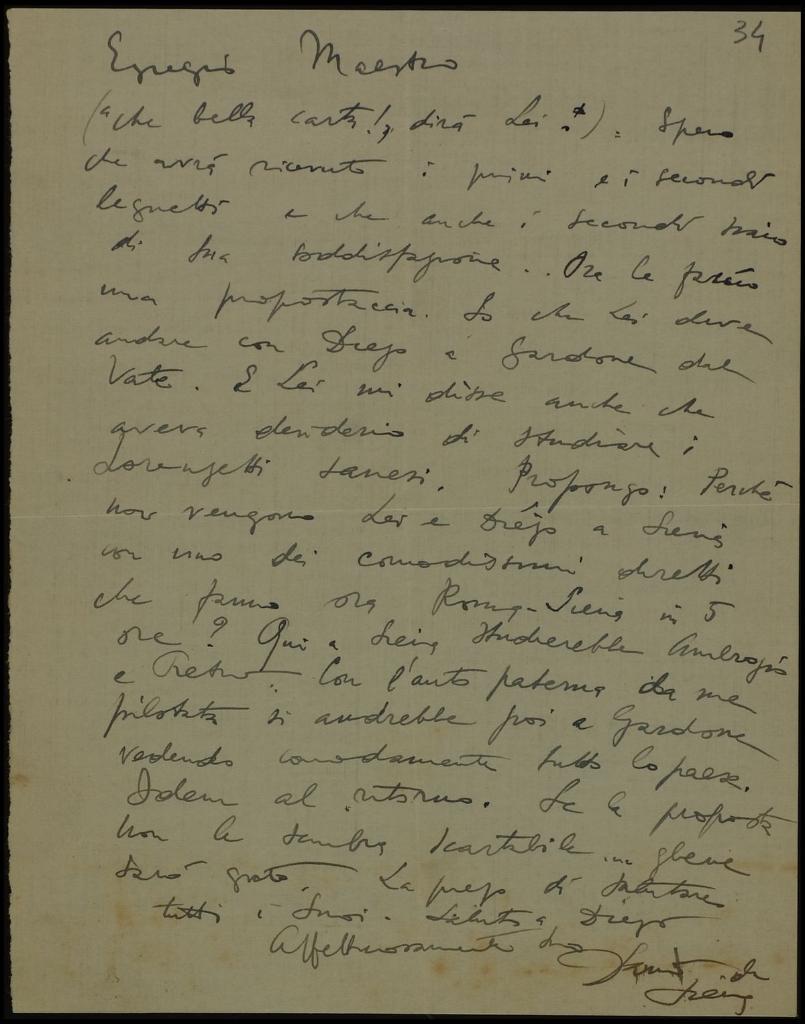 34
Egregio Maestro
("che bella carta!", dirà Lei!). Spero
che avrà ricevuto i primi e i secondi
legnetti e che anche i secondi siano
di Sua soddisfazione.. Ora le farò
una propostaccia. So che Lei deve
andare con Diego a Gardone dal
Vate. E Lei mi disse anche che
aveva desiderio di studiare i
Lorenzetti sanesi. Propongo: Perché
non vengono Lei e Diego a Siena
con uno dei comodissimi diretti
che fanno ora Roma-Siena in 5
ore? Qui a Siena studierebbe Ambrogio
e Pietro. Con l'auto paterna da me
pilotata si andrebbe poi a Gardone
vedendo comodamente tutto lo paese.
Idem al ritorno. Se la proposta
non le sembra scartabile... gliene
sarò grato. La prego di salutare
tutti i Suoi. Saluti a Diego
Affettuosamente suo
di
Siena